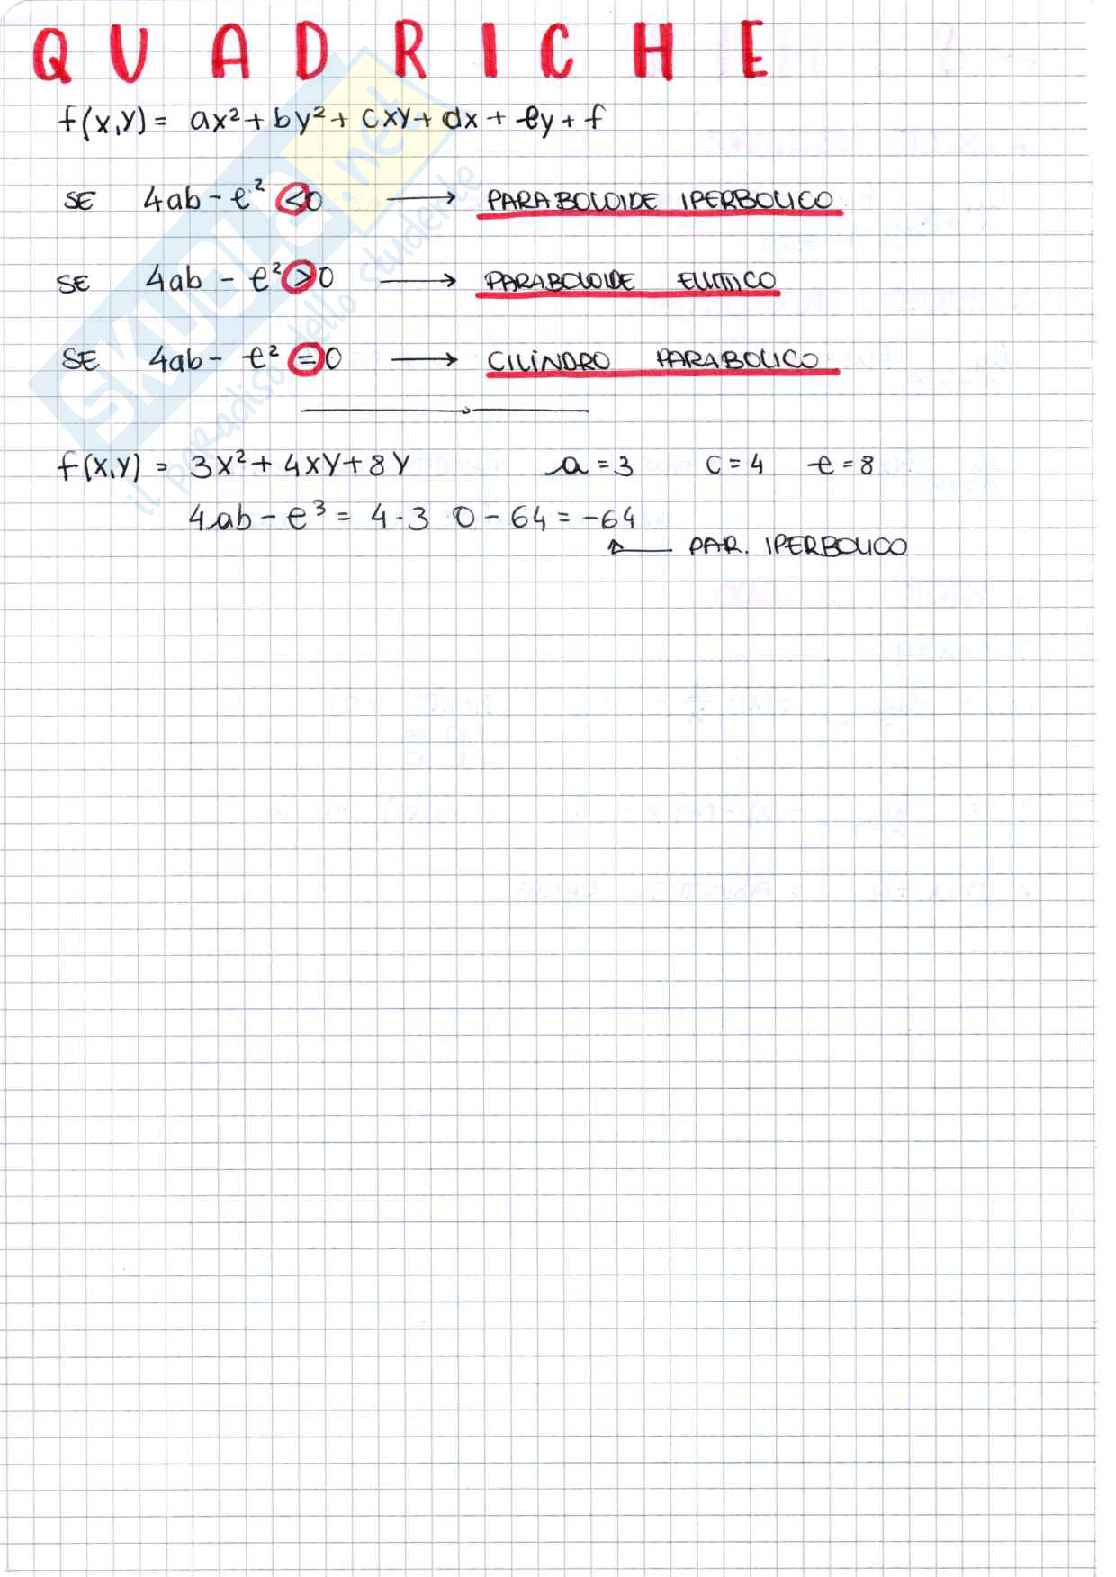 QUADRICHE
f(x,y) = ax² + by² + cxy + dx + ey + f
SE 4ab - e² <0 → PARABOLOIDE IPERBOLICO
SE 4ab - e² >0 → PARABOLOIDE ELLITTICO
SE 4ab - e² =0 → CILINDRO PARABOLICO
f(x,y) = 3x² + 4xy + 8y a = 3 c = 4 e = 8
4ab - e³ = 4·3 0 - 64 = -64
PAR. IPERBOLICO
SKUOLA.net
il paradiso dello studente